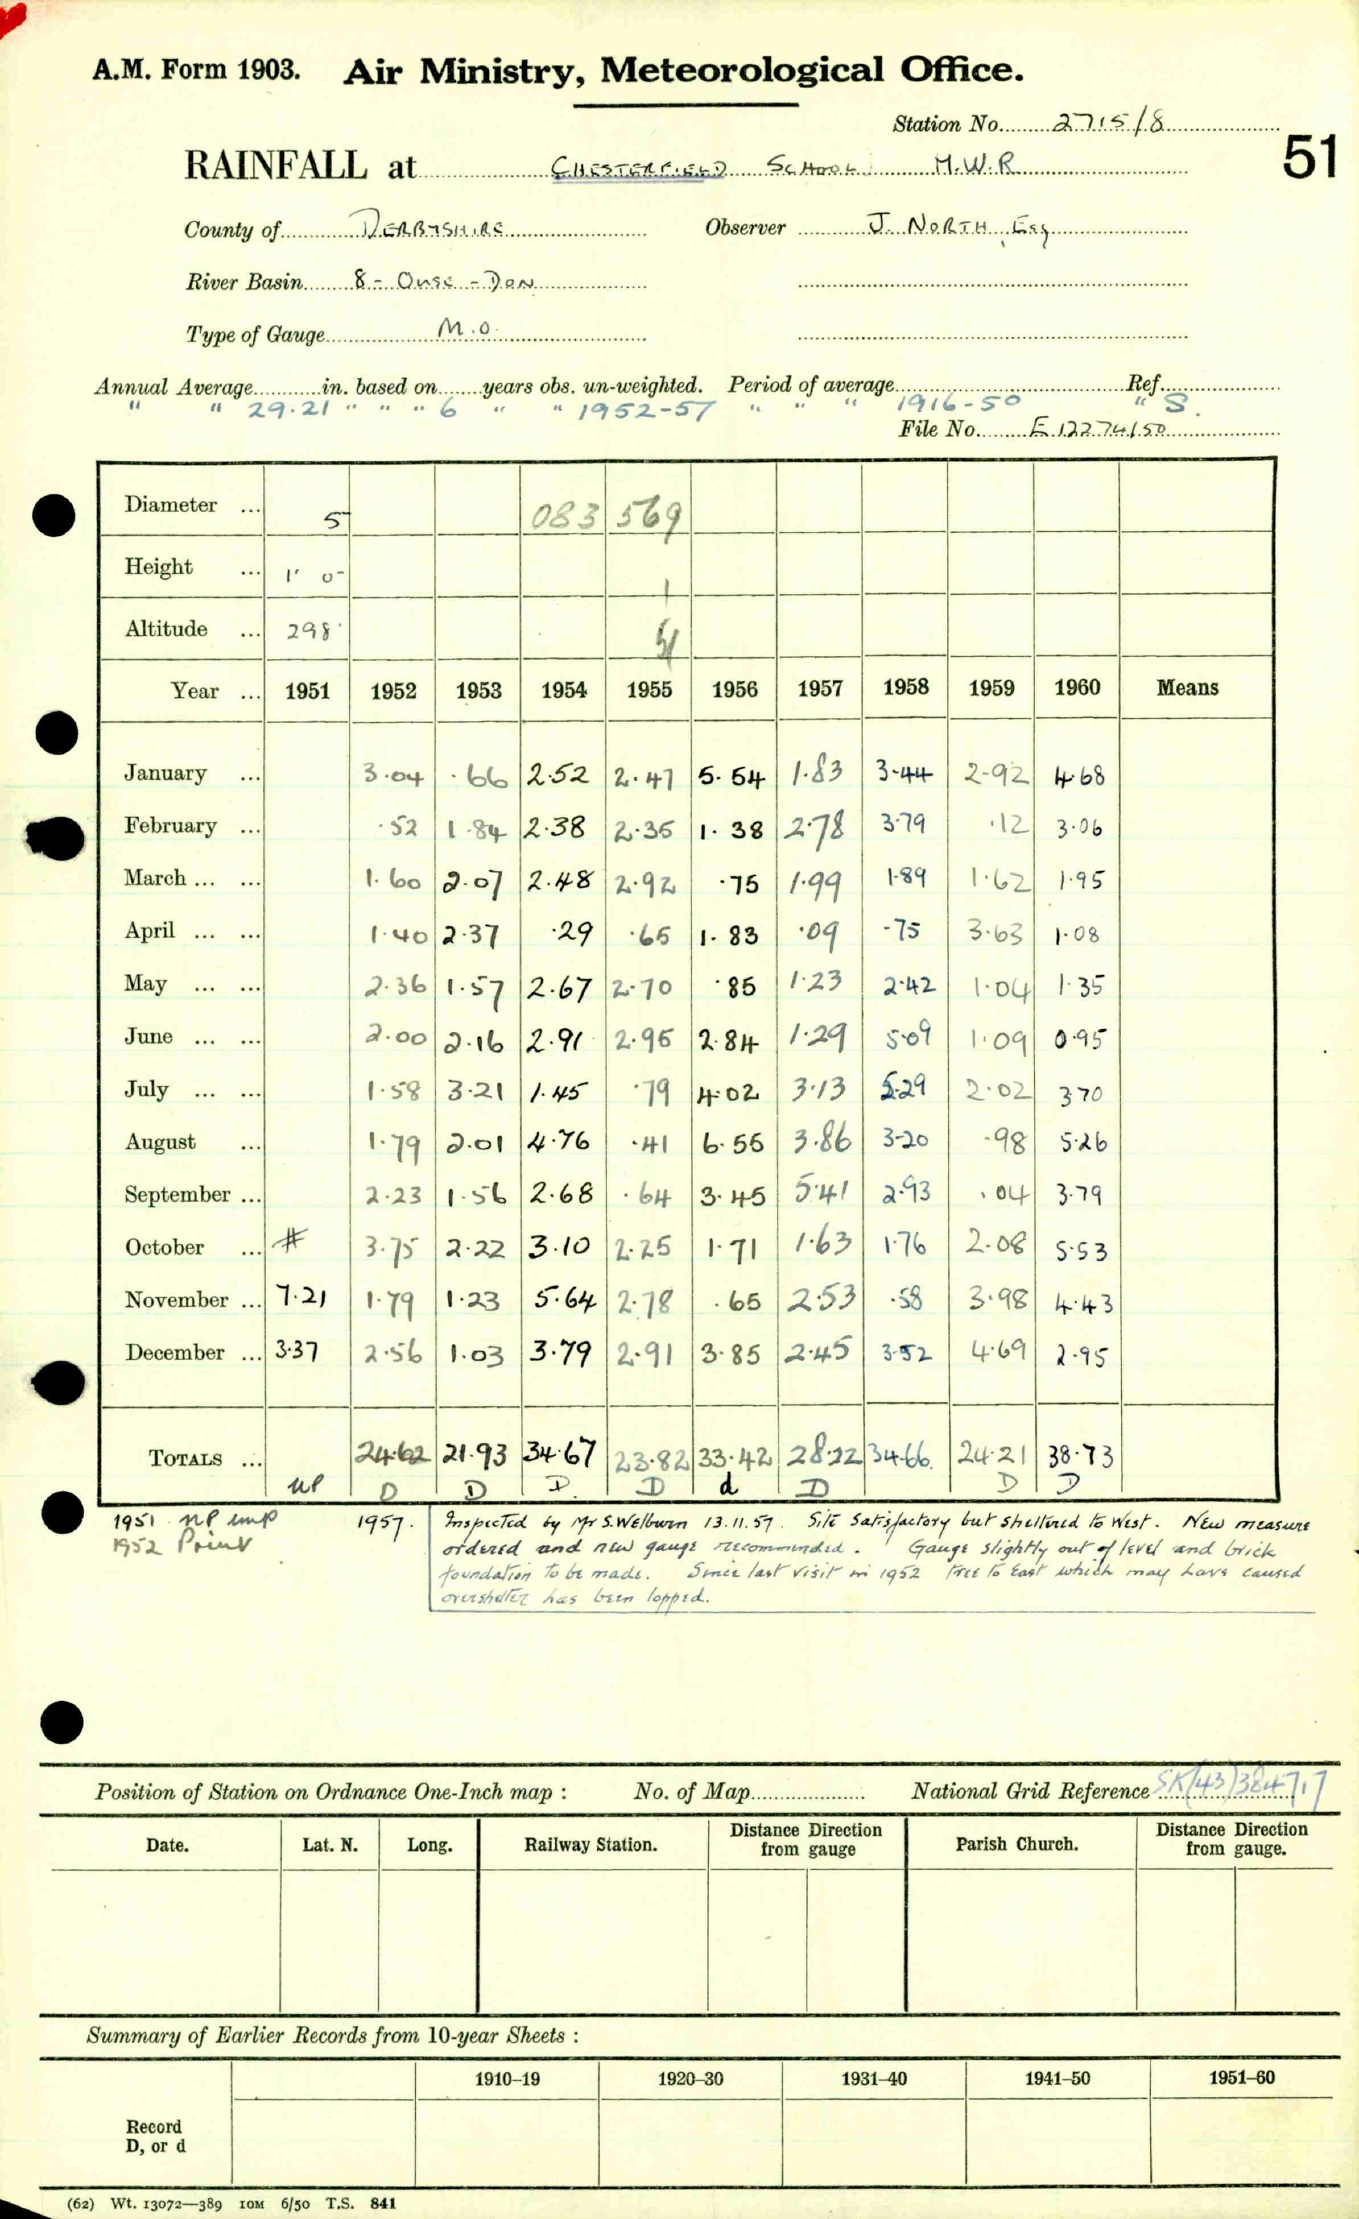 A.M. Form 1903. Air Ministry, Meteorological Office.
Station No. 2715/8
51
RAINFALL at CHESTERFIELD SCHOOL M.W.R
County of DERBYSHIRE Observer J. NORTH, Esq
River Basin 8 - OUSE - DON
Type of Gauge M.O.
Annual Average in. based on years obs. un-weighted. Period of average Ref.
" " 29.21 " " " 6 " " 1952-57 " " " 1916-50 " S.
File No. E 12274/50
Diameter ... 5 083 569
Height ... 1' 0" 1
Altitude ... 298'
Year ... 1951 1952 1953 1954 1955 1956 1957 1958 1959 1960 Means
January ... 3.04 .66 2.52 2.47 5.54 1.83 3.44 2.92 4.68
February ... .52 1.84 2.38 2.35 1.38 2.78 3.79 .12 3.06
March ... ... 1.60 2.07 2.48 2.92 .75 1.99 1.89 1.62 1.95
April ... ... 1.40 2.37 .29 .65 1.83 .09 .75 3.63 1.08
May ... ... 2.36 1.57 2.67 2.70 .85 1.23 2.42 1.04 1.35
June ... ... 2.00 2.16 2.91 2.95 2.84 1.29 5.09 1.09 0.95
July ... ... 1.58 3.21 1.45 .79 4.02 3.13 5.29 2.02 3.70
August ... 1.79 2.01 4.76 .41 6.55 3.86 3.20 .98 5.26
September ... 2.23 1.56 2.68 .64 3.45 5.41 2.93 .04 3.79
October ... # 3.75 2.22 3.10 2.25 1.71 1.63 1.76 2.08 5.53
November ... 7.21 1.79 1.23 5.64 2.78 .65 2.53 .58 3.98 4.43
December ... 3.37 2.56 1.03 3.79 2.91 3.85 2.45 3.52 4.69 2.95
TOTALS ... 24.62 21.93 34.67 23.82 33.42 28.22 34.66 24.21 38.73
NP D D D. D d D D D
1951 NP imp
1952 Print
1957. Inspected by Mr S. Welburn 13.11.57. Site satisfactory but sheltered to West. New measure
ordered and new gauge recommended. Gauge slightly out of level and brick
foundation to be made. Since last visit in 1952 tree to East which may have caused
overshelter has been lopped.
Position of Station on Ordnance One-Inch map : No. of Map National Grid Reference SK(43)384717
Date. Lat. N. Long. Railway Station. Distance Direction from gauge Parish Church. Distance Direction from gauge.
Summary of Earlier Records from 10-year Sheets :
1910–19 1920–30 1931–40 1941–50 1951–60
Record
D, or d
(62) Wt. 13072—389 10M 6/50 T.S. 841